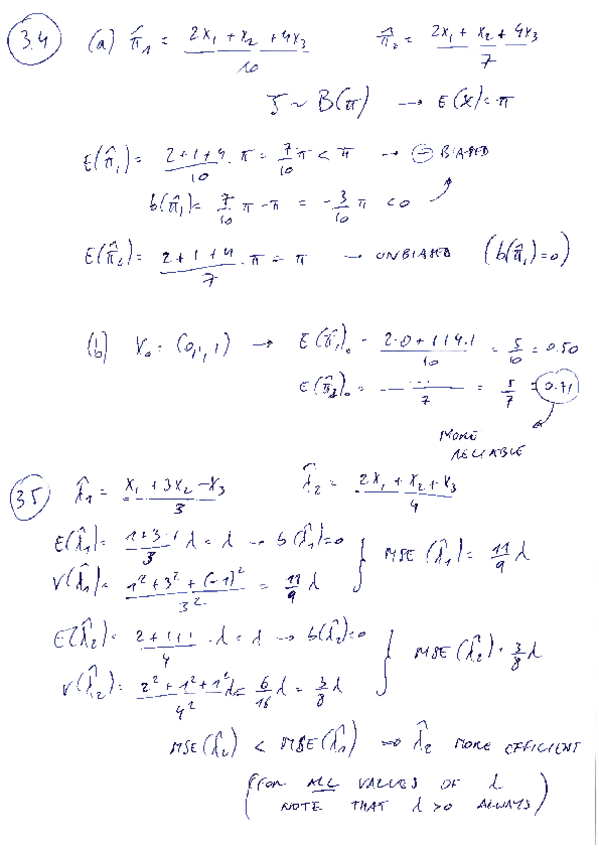 3.4 (a) π̂₁ = (2x₁ + x₂ + 4x₃)/10   π̂₂ = (2x₁ + x₂ + 4x₃)/7
~ B(π) → E(X) = π
E(π̂₁) = (2+1+4)/10 · π = 7/10 π < π → ⊖ BIASED
b(π̂₁) = 7/10 π − π = − 3/10 π < 0
E(π̂₂) = (2+1+4)/7 · π = π → UNBIASED (b(π̂₁)=0)
(b) X₀ = (0,1,1) → E(π̂₁)₀ = (2·0+1+4·1)/10 = 5/10 = 0.50
E(π̂₂)₀ = .../7 = 5/7 = 0.71
MORE
RELIABLE
3.5 λ̂₁ = (x₁ + 3x₂ − x₃)/3   λ̂₂ = (2x₁ + x₂ + x₃)/4
E(λ̂₁) = (1+3-1)/3 λ = λ → b(λ̂₁)=0
V(λ̂₁) = (1² + 3² + (−1)²)/3² = 11/9 λ } MSE(λ̂₁) = 11/9 λ
E(λ̂₂) = (2+1+1)/4 · λ = λ → b(λ̂₂)=0
V(λ̂₂) = (2² + 1² + 1²)/4² λ = 6/16 λ = 3/8 λ } MSE(λ̂₂) = 3/8 λ
MSE(λ̂₂) < MSE(λ̂₁) ⇒ λ̂₂ MORE EFFICIENT
(FOR ALL VALUES OF λ
NOTE THAT λ>0 ALWAYS)